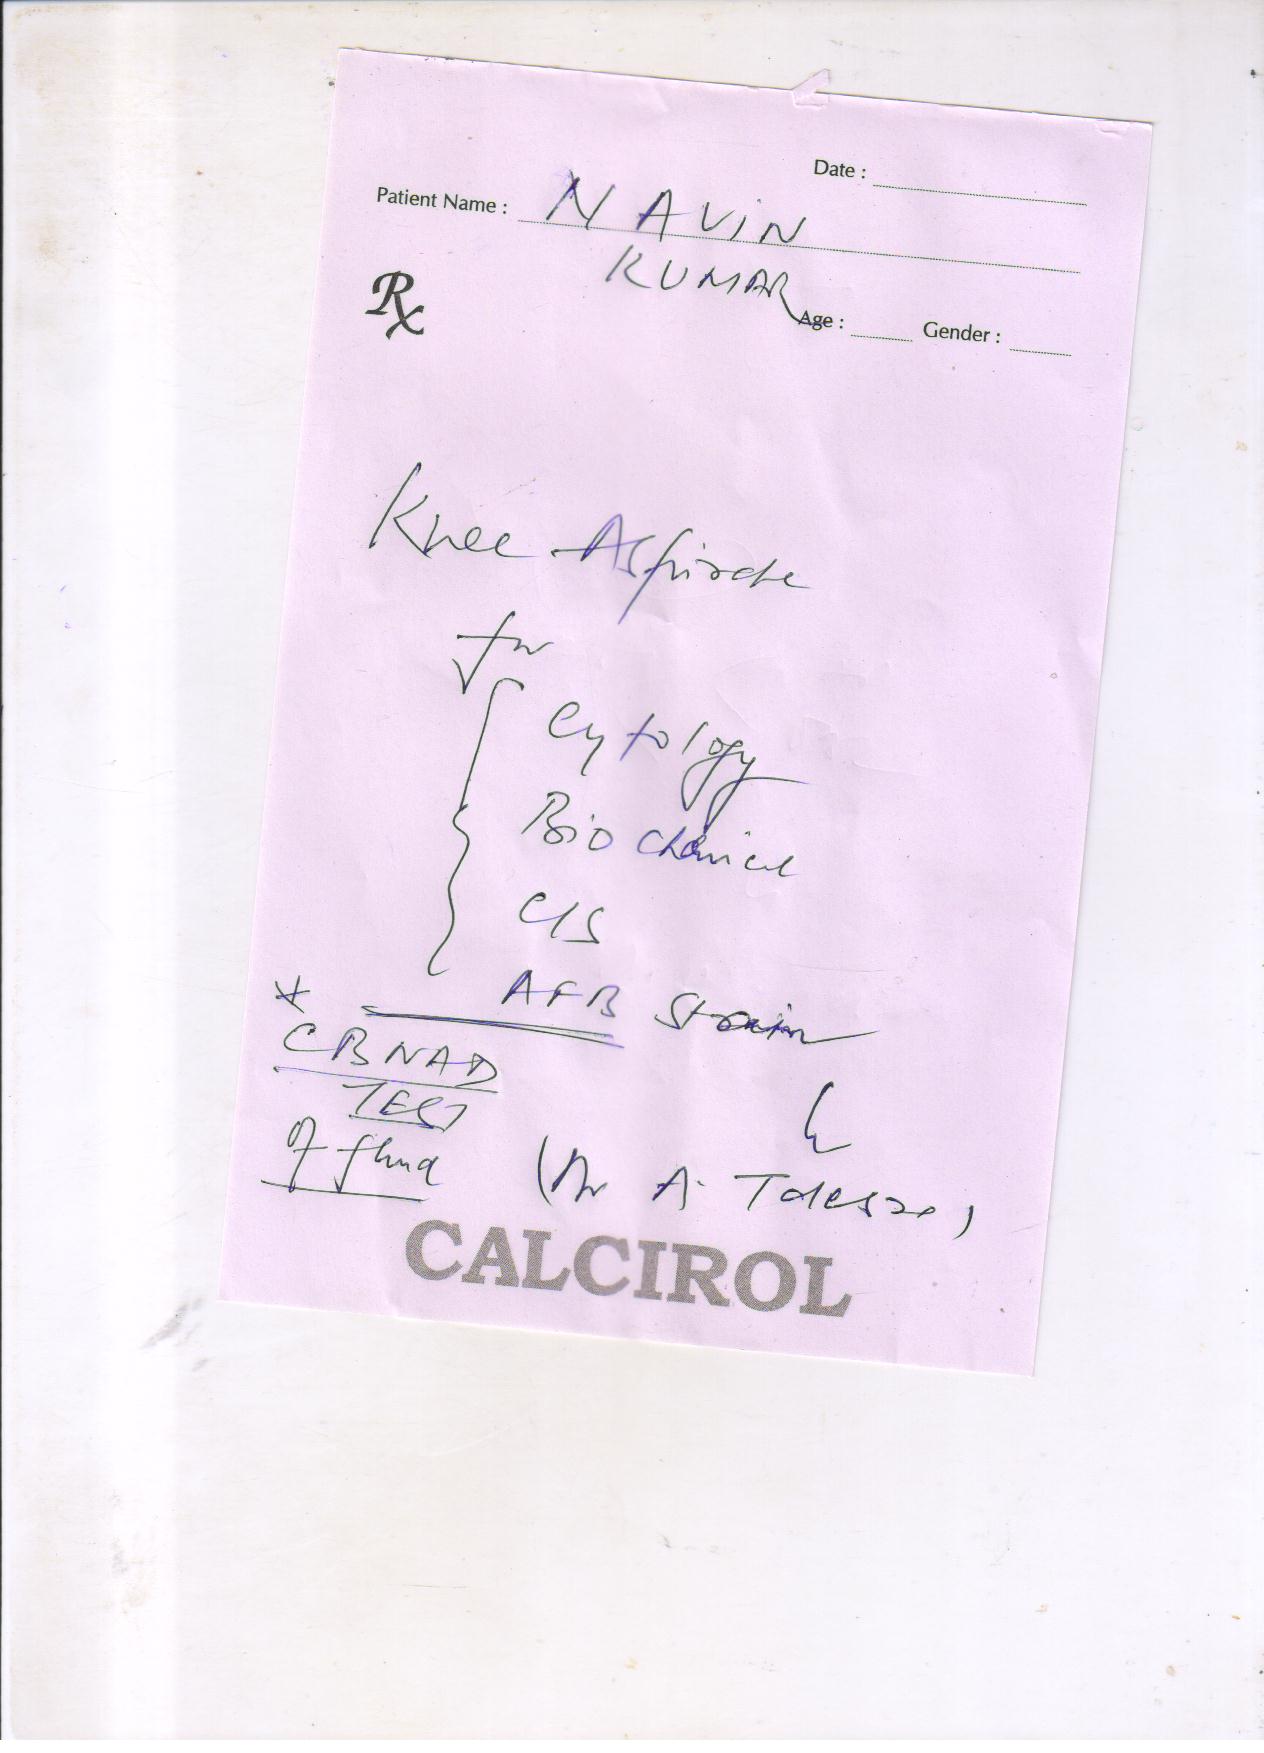 Date :
Patient Name : NAVIN
KUMAR
Rx
Age : Gender :
Knee Aspirate
for
Cytology
Bio Chemical
C/S
AFB Stain
*
CBNAD
TEST
of fluid
(Dr A.
CALCIROL